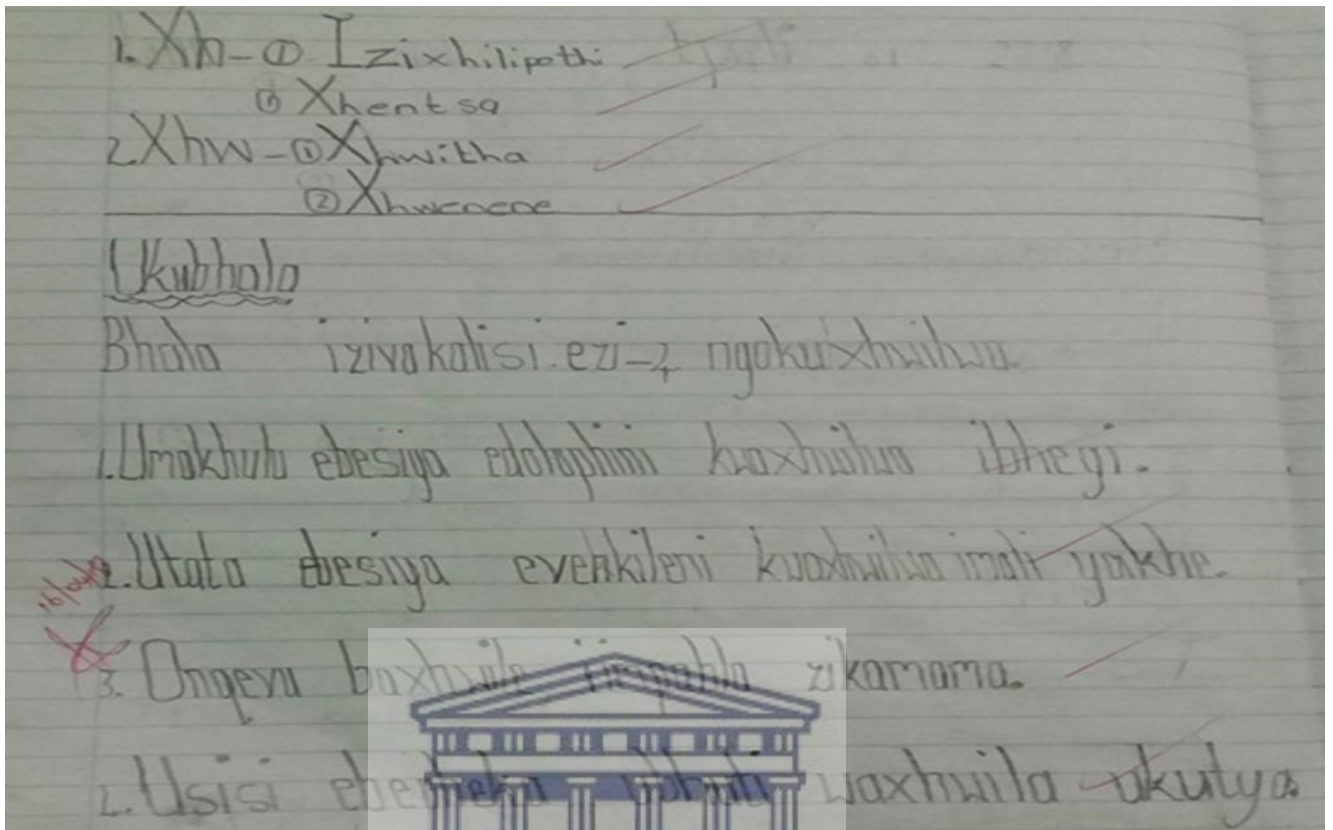 1. Xh - ① Izixhilipothi
② Xhentsa
2. Xhw - ① Xhwitha
② Xhwenene
Ukubhala
Bhala izivakalisi ezi-4 ngokuxhwilwa.
1. Umakhulu ebesiya edolophini kwaxhwilwa ibhegi.
2. Utata ebesiya evenkileni kwaxhwilwa imali yakhe.
3. Onqevu baxhwile iimpahla zikamama.
4. Usisi ubhuti waxhwila ukutya.